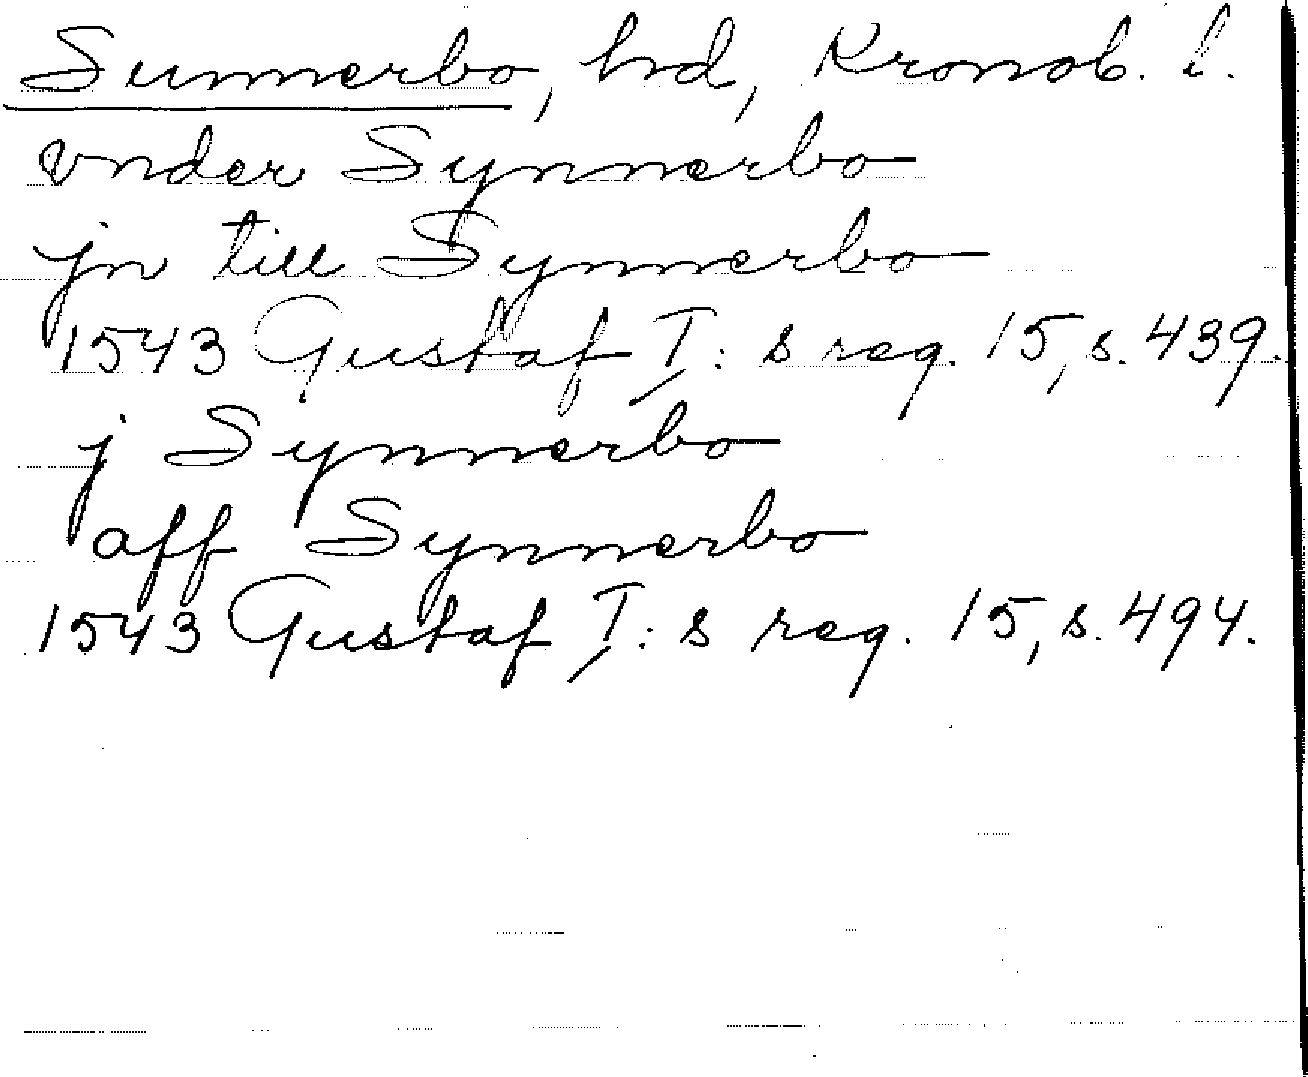 Sunnerbo, hd, Kronob. l.
vnder Synnerbo
jn till Synnerbo
1543 Gustaf I: s reg. 15, s. 439.
j Synnerbo
aff Synnerbo
1543 Gustaf I: s reg. 15, s. 494.